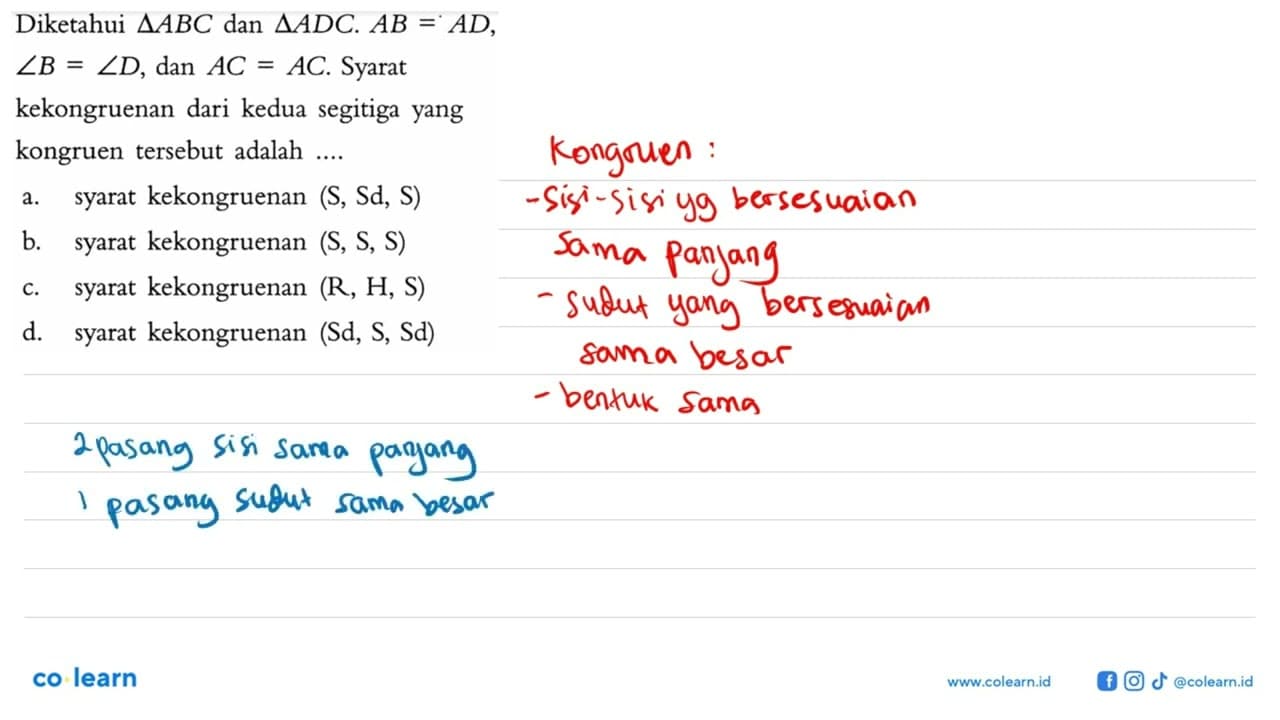 Diketahui ΔABC dan ΔADC. AB = AD,
∠B = ∠D, dan AC = AC. Syarat
kekongruenan dari kedua segitiga yang
kongruen tersebut adalah ....
a. syarat kekongruenan (S, Sd, S)
b. syarat kekongruenan (S, S, S)
c. syarat kekongruenan (R, H, S)
d. syarat kekongruenan (Sd, S, Sd)
Kongruen :
- Sisi-sisi yg bersesuaian
sama panjang
- sudut yang bersesuaian
sama besar
- bentuk sama
2 pasang sisi sama panjang
1 pasang sudut sama besar
co learn
www.colearn.id
@colearn.id